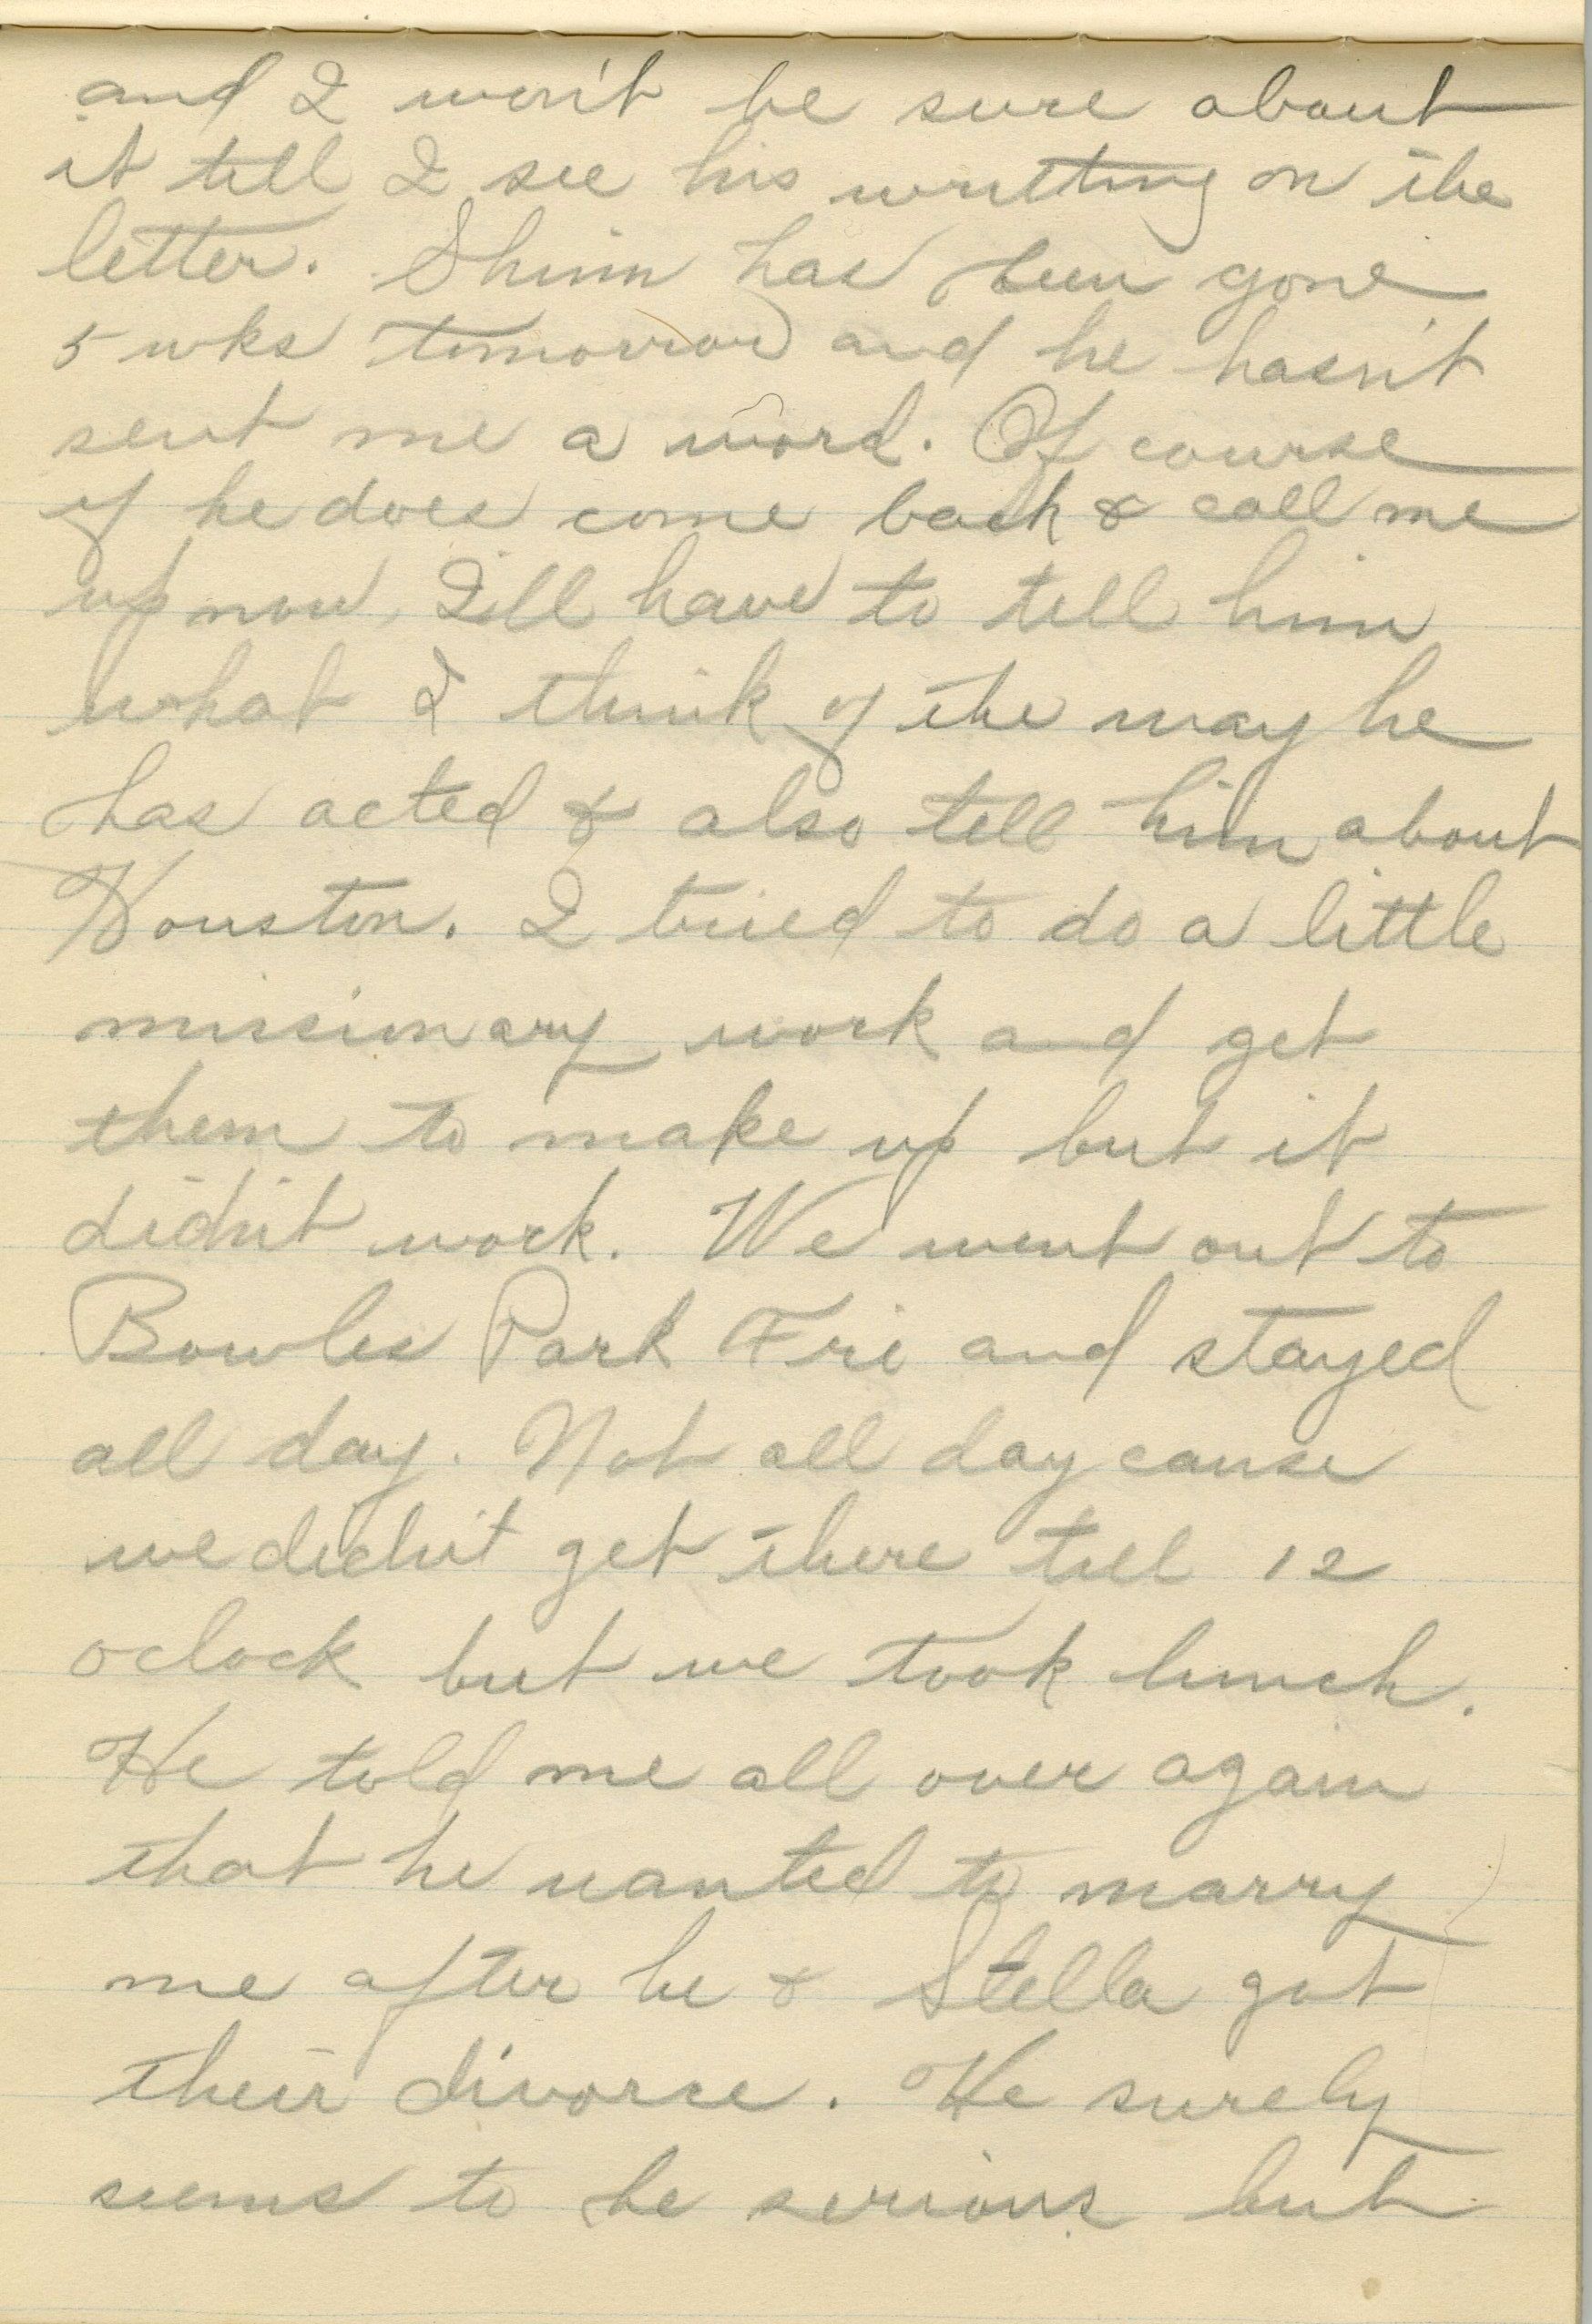 and I won't be sure about
it till I see his writting on the
letter. Shinn has been gone
5 wks tomorrow and he hasn't
sent me a word. Of course
if he does come back & call me
up now, I'll have to tell him
what I think of the way he
has acted & also tell him about
Houston. I tried to do a little
missionary work and get
them to make up but it
didn't work. We went out to
Bowles Park Fri and stayed
all day. Not all day cause
we didn't get there till 12
oclock but we took lunch.
He told me all over again
that he wanted to marry
me after he & Stella got
their divorce. He surely
seems to be serious but